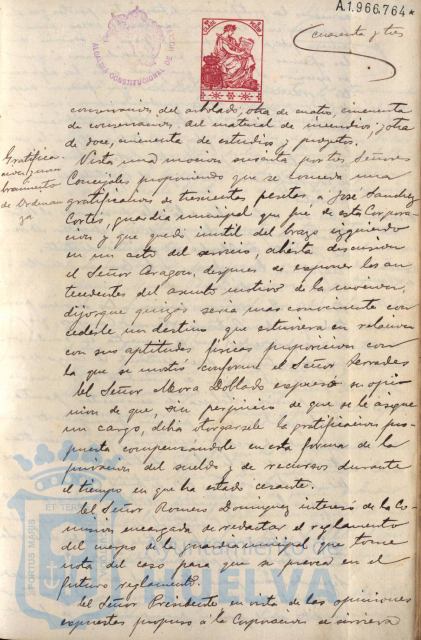 A.1.966,764*
cuarenta y tres
ALCALDIA CONSTITUCIONAL DE
conservacion del arbolado, otra de cuatro, cincuenta
de conservacion del material de incendios, y otra
de doce, cincuenta de estudios y proyectos.
Gratificacion
nombramiento
de Ordenanza
Vista una mocion suscrita por tres Señores
Concejales proponiendo que se conceda una
gratificacion de trescientas pesetas a José Sanchez
Cortés, guardia municipal que fué de esta Corpora-
cion y que quedó inutil del brazo izquierdo
en un acto del servicio, abierta discusion
el Señor Aragon, despues de exponer los an-
tecedentes del asunto motivo de la mocion,
dijo que quizás seria mas conveniente con-
cederle un destino que estuviera en relacion
con sus aptitudes fisicas proposicion con
la que se mostró conforme el Señor
El Señor Mora Doblado expuso su opi-
nion de que, sin perjuicio de que se le asigne
un cargo, debia otorgarsele la gratificacion pro-
puesta compensandole en esta forma de la
privacion del sueldo y de recursos durante
el tiempo en que ha estado cesante.
El Señor Romero Dominguez interesó de la Co-
mision encargada de redactar el reglamento
del cuerpo de la guardia municipal que tome
nota del caso para que se prevea en el
futuro reglamento.
El Señor Presidente en vista de las opiniones
expuestas propuso a la Corporacion se sirviera
PORTUS MARIS ET TERRAE
Ayuntamiento de
HUELVA